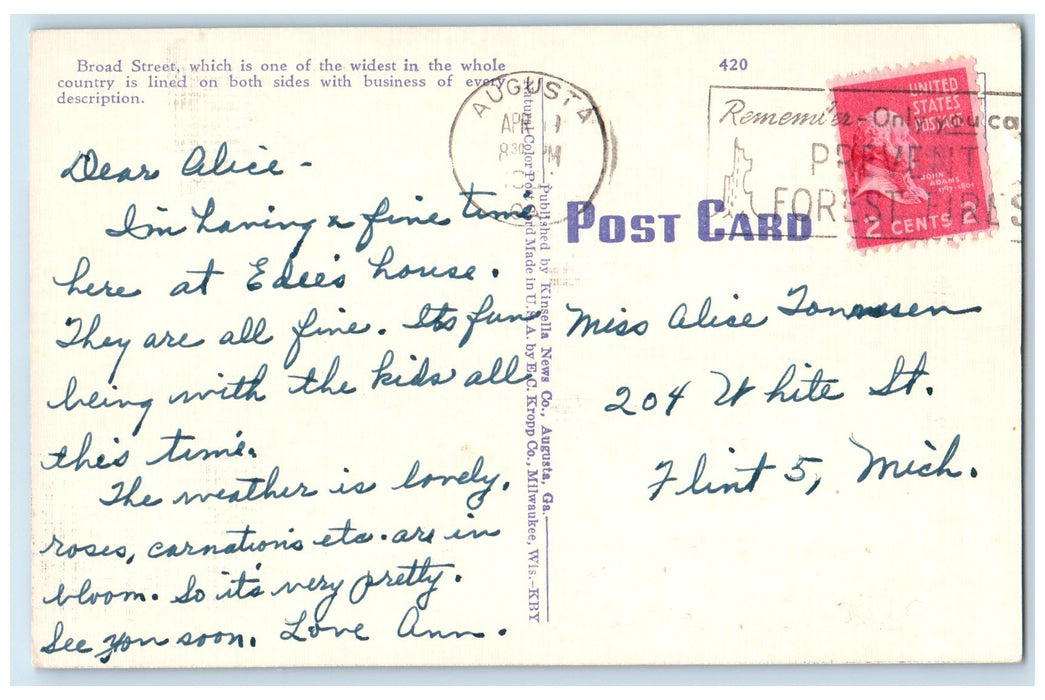 Broad Street, which is one of the widest in the whole
country is lined on both sides with business of every
description.
420
AUGUSTA
APR
8 30 PM
GA
Remember - Only you ca
PREVENT
FOREST FIRES
UNITED
STATES
POSTAGE
JOHN
ADAMS
1797-1801
2 CENTS 2
POST CARD
Dear Alice -
I'm having a fine time
here at Edie's house.
They are all fine. Its fun
being with the kids all
this time.
The weather is lovely.
roses, carnations etc. are in
bloom. So it's very pretty.
See you soon. Love Ann.
Published by Kinsella News Co., Augusta, Ga.
Natural Color Post Card Made in U. S. A. by E. C. Kropp Co., Milwaukee, Wis.-KBY
Miss Alice Tonnesen
204 White St.
Flint 5, Mich.